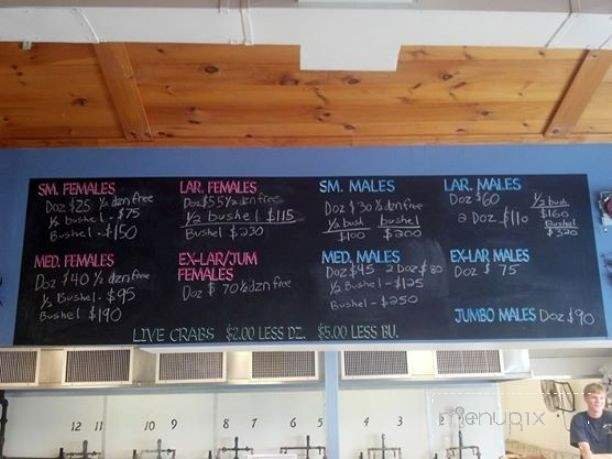 SM. FEMALES
Doz $25 ½ dzn free
½ bushel - $75
Bushel - $150
LAR. FEMALES
Doz $55 ½ dzn free
½ bushel $115
Bushel $230
SM. MALES
Doz $30 ½ dzn free
½ bushel bushel
$100 $200
LAR. MALES
Doz $60
2 Doz $110
½ bush
$160
Bushel
$320
MED. FEMALES
Doz $40 ½ dzn free
½ Bushel - $95
Bushel $190
EX-LAR/JUM
FEMALES
Doz $70 ½ dzn free
MED. MALES
Doz $45 2 Doz $80
½ Bushel - $125
Bushel - $250
EX-LAR MALES
Doz $75
JUMBO MALES Doz $90
LIVE CRABS $2.00 LESS DZ. $5.00 LESS BU.
12 11 10 9 8 7 6 5 4 3 2
menupix